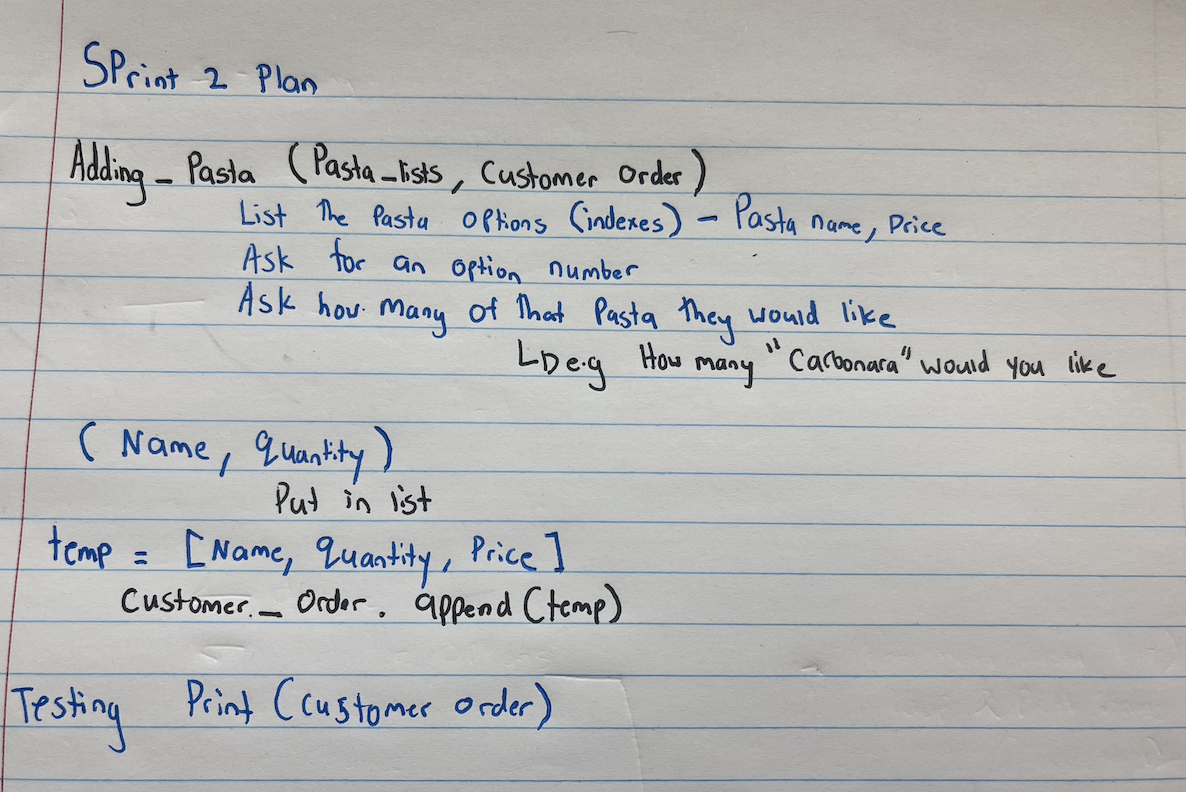 SPrint 2 Plan
Adding_Pasta (Pasta_lists, Customer Order)
List The Pasta options (indexes) - Pasta name, Price
Ask for an option number
Ask how many of that Pasta they would like
↳ e.g How many "Carbonara" would you like
(Name, quantity)
Put in list
temp = [Name, quantity, Price]
Customer_Order.append(temp)
Testing Print (customer order)